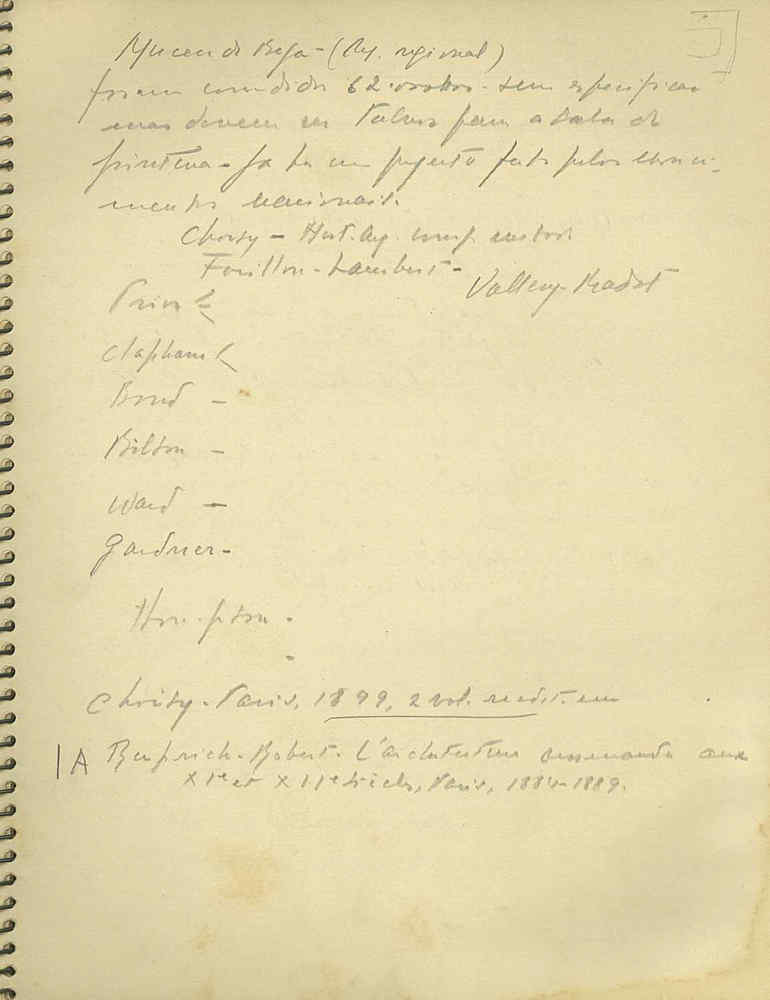 Museu de Beja - (Reg. regional)
foram concedidos 62 contos - sem especificar
mas devem ser Talvez para a sala de
pintura - Já há um projecto feito pelos
nacionais.
Choisy - Hist.
Focillon - Lambert -
Vallery-Radot
Prior
Clapham
Bond -
Bilson -
Ward -
Gardner -
Choisy - Paris, 1899, 2 vol. reedit. em
A Ruprich-Robert. L'architecture normande aux
XIe et XIIe siècles, Paris, 1884-1889.